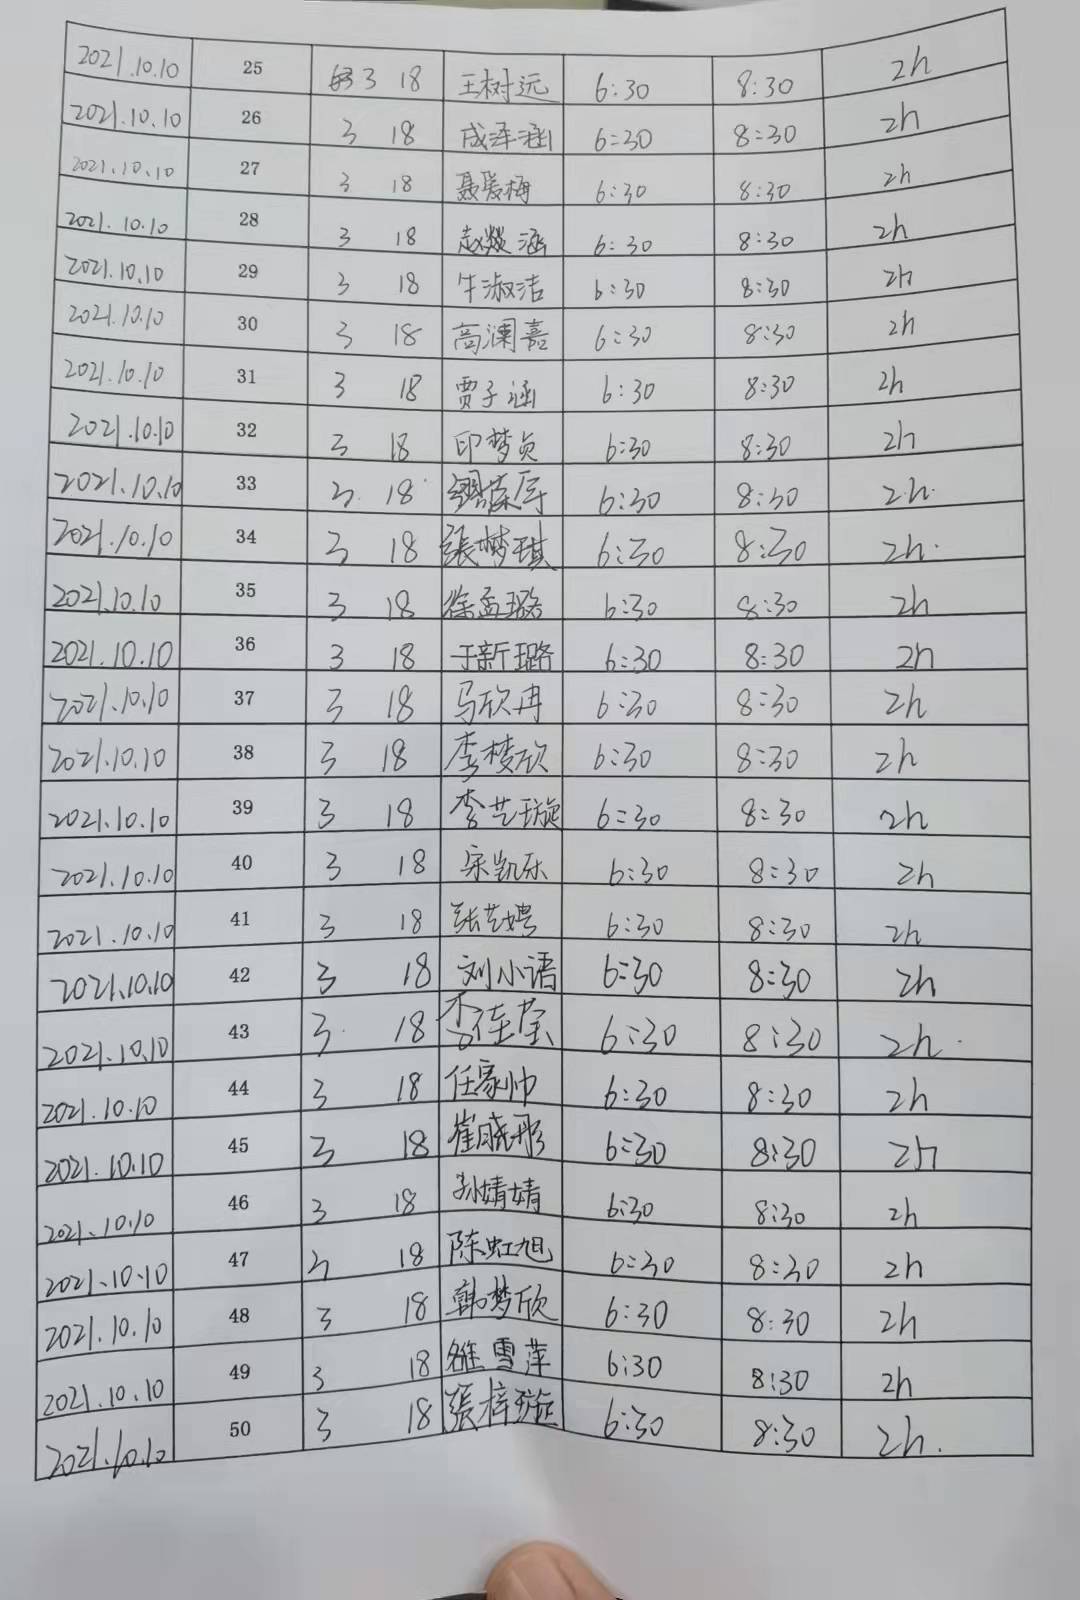 2021.10.10 25 3 18 王树远 6:30 8:30 2h
2021.10.10 26 3 18 成泽涵 6:30 8:30 2h
2021.10.10 27 3 18 聂爱梅 6:30 8:30 2h
2021.10.10 28 3 18 赵燚涵 6:30 8:30 2h
2021.10.10 29 3 18 牛淑洁 6:30 8:30 2h
2021.10.10 30 3 18 高澜嘉 6:30 8:30 2h
2021.10.10 31 3 18 贾子涵 6:30 8:30 2h
2021.10.10 32 3 18 印梦贞 6:30 8:30 2h
2021.10.10 33 3 18 6:30 8:30 2h
2021.10.10 34 3 18 張梦琪 6:30 8:30 2h
2021.10.10 35 3 18 徐孟璐 6:30 8:30 2h
2021.10.10 36 3 18 于新璐 6:30 8:30 2h
2021.10.10 37 3 18 马欣冉 6:30 8:30 2h
2021.10.10 38 3 18 李梦欣 6:30 8:30 2h
2021.10.10 39 3 18 李艺璇 6:30 8:30 2h
2021.10.10 40 3 18 宋凯乐 6:30 8:30 2h
2021.10.10 41 3 18 张艺娉 6:30 8:30 2h
2021.10.10 42 3 18 刘小语 6:30 8:30 2h
2021.10.10 43 3 18 李佳莹 6:30 8:30 2h
2021.10.10 44 3 18 任家帅 6:30 8:30 2h
2021.10.10 45 3 18 崔晓彤 6:30 8:30 2h
2021.10.10 46 3 18 孙婧婧 6:30 8:30 2h
2021.10.10 47 3 18 陈虹旭 6:30 8:30 2h
2021.10.10 48 3 18 韩梦欣 6:30 8:30 2h
2021.10.10 49 3 18 雪萍 6:30 8:30 2h
2021.10.10 50 3 18 張梓璇 6:30 8:30 2h.